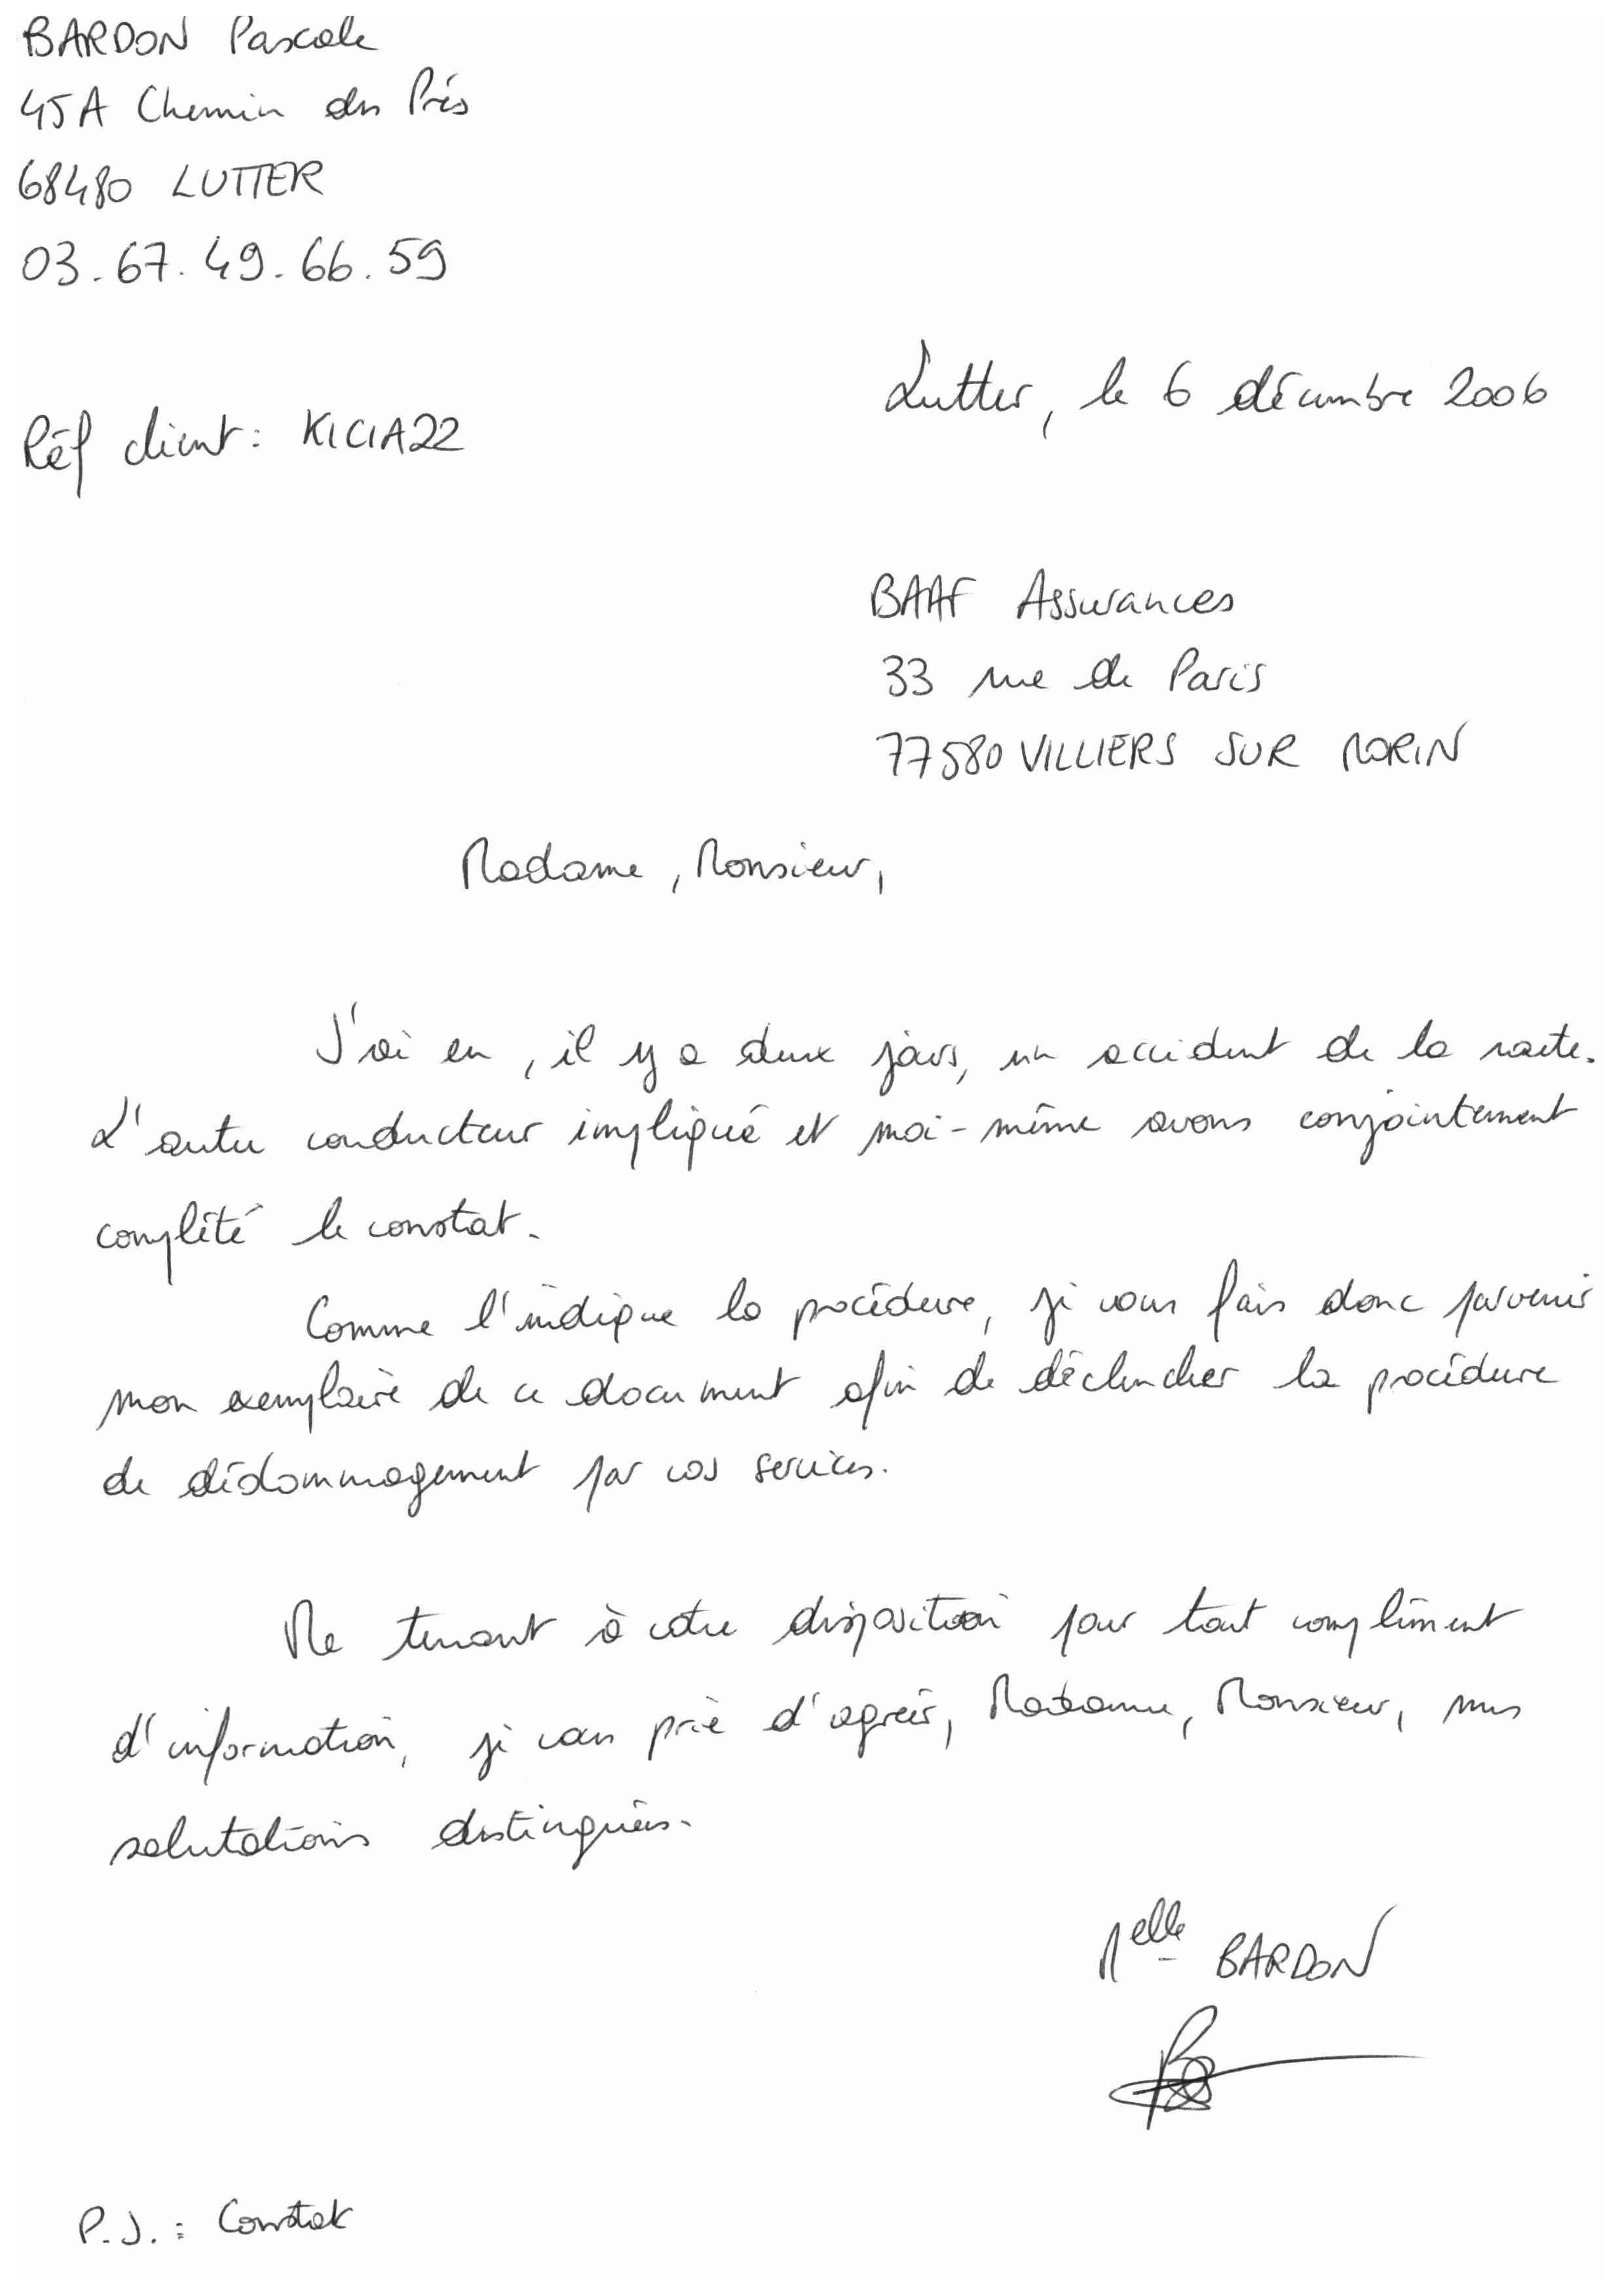 BARDON Pascale
45A Chemin des Prés
68480 LUTTER
03.67.49.66.59
Lutter, le 6 décembre 2006
Réf client : KICIA22
BAAF Assurances
33 rue de Paris
77580 VILLIERS SUR MORIN
Madame, Monsieur,
J'ai eu, il y a deux jours, un accident de la route.
L'autre conducteur impliqué et moi-même avons conjointement
complété le constat.
Comme l'indique la procédure, je vous fais donc parvenir
mon exemplaire de ce document afin de déclencher la procédure
de dédommagement par vos services.
Me tenant à votre disposition pour tout complément
d'information, je vous prie d'agréer, Madame, Monsieur, mes
salutations distinguées.
Melle BARDON
P.J. : Constat